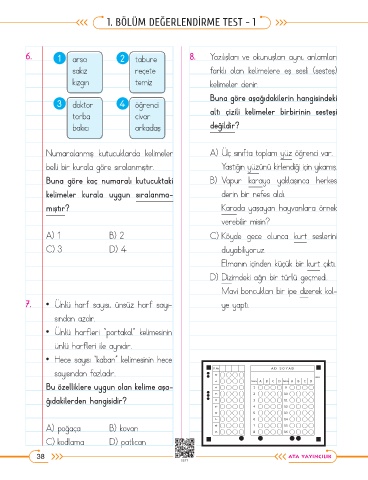 1. BÖLÜM DEĞERLENDİRME TEST - 1
6.
1 arsa
sakız
kızgın
2 tabure
reçete
temiz
3 doktor
torba
bakıcı
4 öğrenci
civar
arkadaş
Numaralanmış kutucuklarda kelimeler
belli bir kurala göre sıralanmıştır.
Buna göre kaç numaralı kutucuktaki
kelimeler kurala uygun sıralanma-
mıştır?
A) 1 B) 2
C) 3 D) 4
7. • Ünlü harf sayısı, ünsüz harf sayı-
sından azdır.
• Ünlü harfleri "portakal" kelimesinin
ünlü harfleri ile aynıdır.
• Hece sayısı "kaban" kelimesinin hece
sayısından fazladır.
Bu özelliklere uygun olan kelime aşa-
ğıdakilerden hangisidir?
A) poğaça B) kovan
C) kodlama D) patlıcan
8. Yazılışları ve okunuşları aynı, anlamları
farklı olan kelimelere eş sesli (sesteş)
kelimeler denir.
Buna göre aşağıdakilerin hangisindeki
altı çizili kelimeler birbirinin sesteşi
değildir?
A) Üç sınıfta toplam yüz öğrenci var.
Yastığın yüzünü kirlendiği için yıkamış.
B) Vapur karaya yaklaşınca herkes
derin bir nefes aldı.
Karada yaşayan hayvanlara örnek
verebilir misin?
C) Köyde gece olunca kurt seslerini
duyabiliyoruz.
Elmanın içinden küçük bir kurt çıktı.
D) Dizimdeki ağrı bir türlü geçmedi.
Mavi boncukları bir ipe dizerek kol-
ye yaptı.
AD SOYAD
38
ATA YAYINCILIK